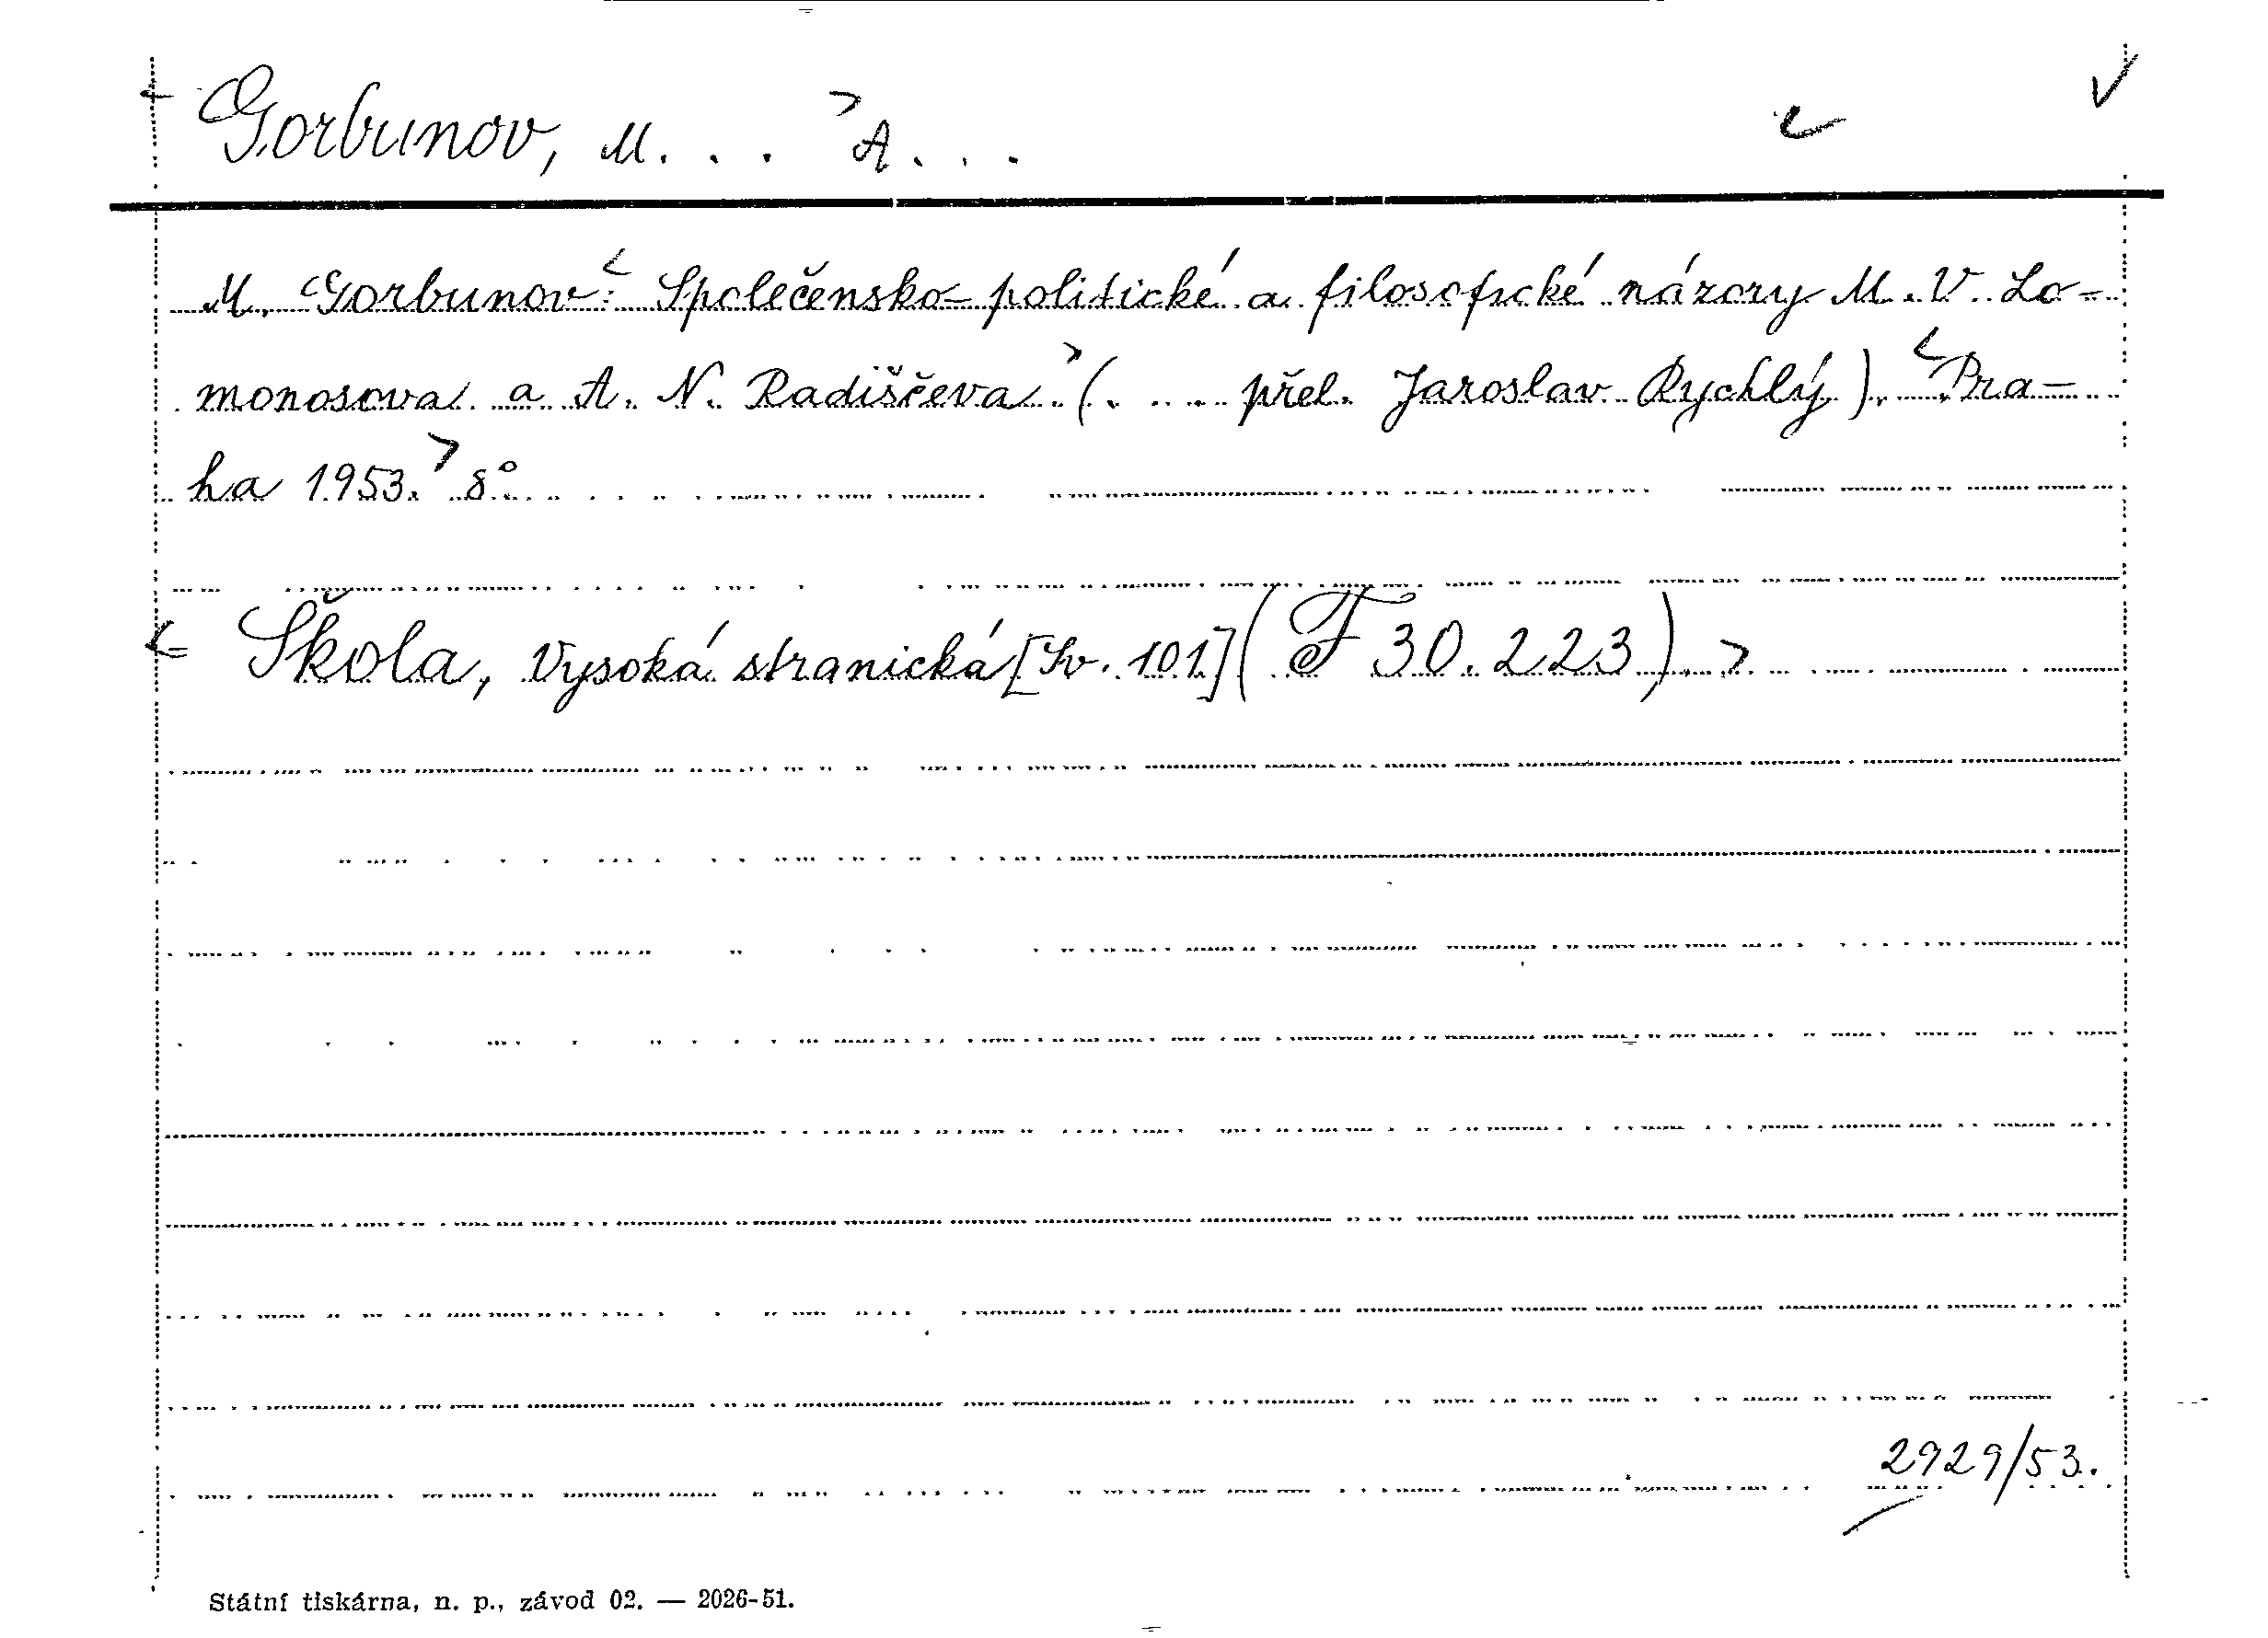 Gorbunov, M... A...
M. Gorbunov: Společensko-politické a filosofické názory M. V. Lo-
monosova a A. N. Radiščeva. (. ... přel. Jaroslav Rychlý). Pra-
ha 1953. 8°.
Škola, Vysoká stranická [Sv. 101] (F 30.223).
2929/53.
Státní tiskárna, n. p., závod 02. — 2026-51.